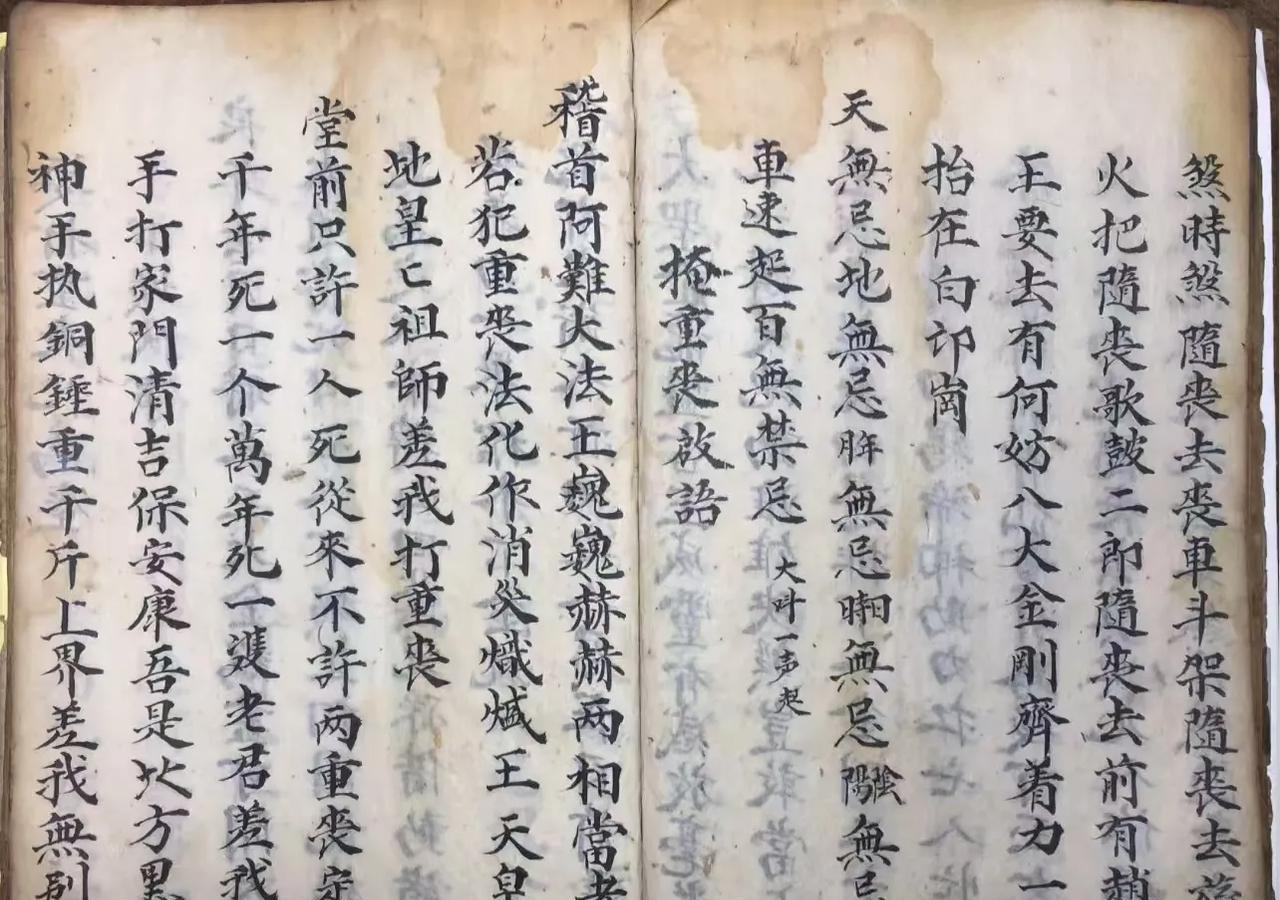 煞時煞隨喪去喪車斗架隨喪去
火把隨喪歌鼓二郎隨喪去前有趙
王要去有何妨八大金剛齊着力一
抬在白卬崗
天無忌地無忌年無忌月無忌日無忌時無忌陰陽無忌
車速起百無禁忌大叫一声起
掩重喪啟語
稽首阿難大法王巍巍赫赫两相當
若犯重喪法化作消災熾王天皇
地皇亡祖師差我打重喪
堂前只許一人死從來不許两重喪
千年死一个萬年死一雙老君差我
手打家門清吉保安康吾是北方黑
神手执銅錘重千斤上界差我無别